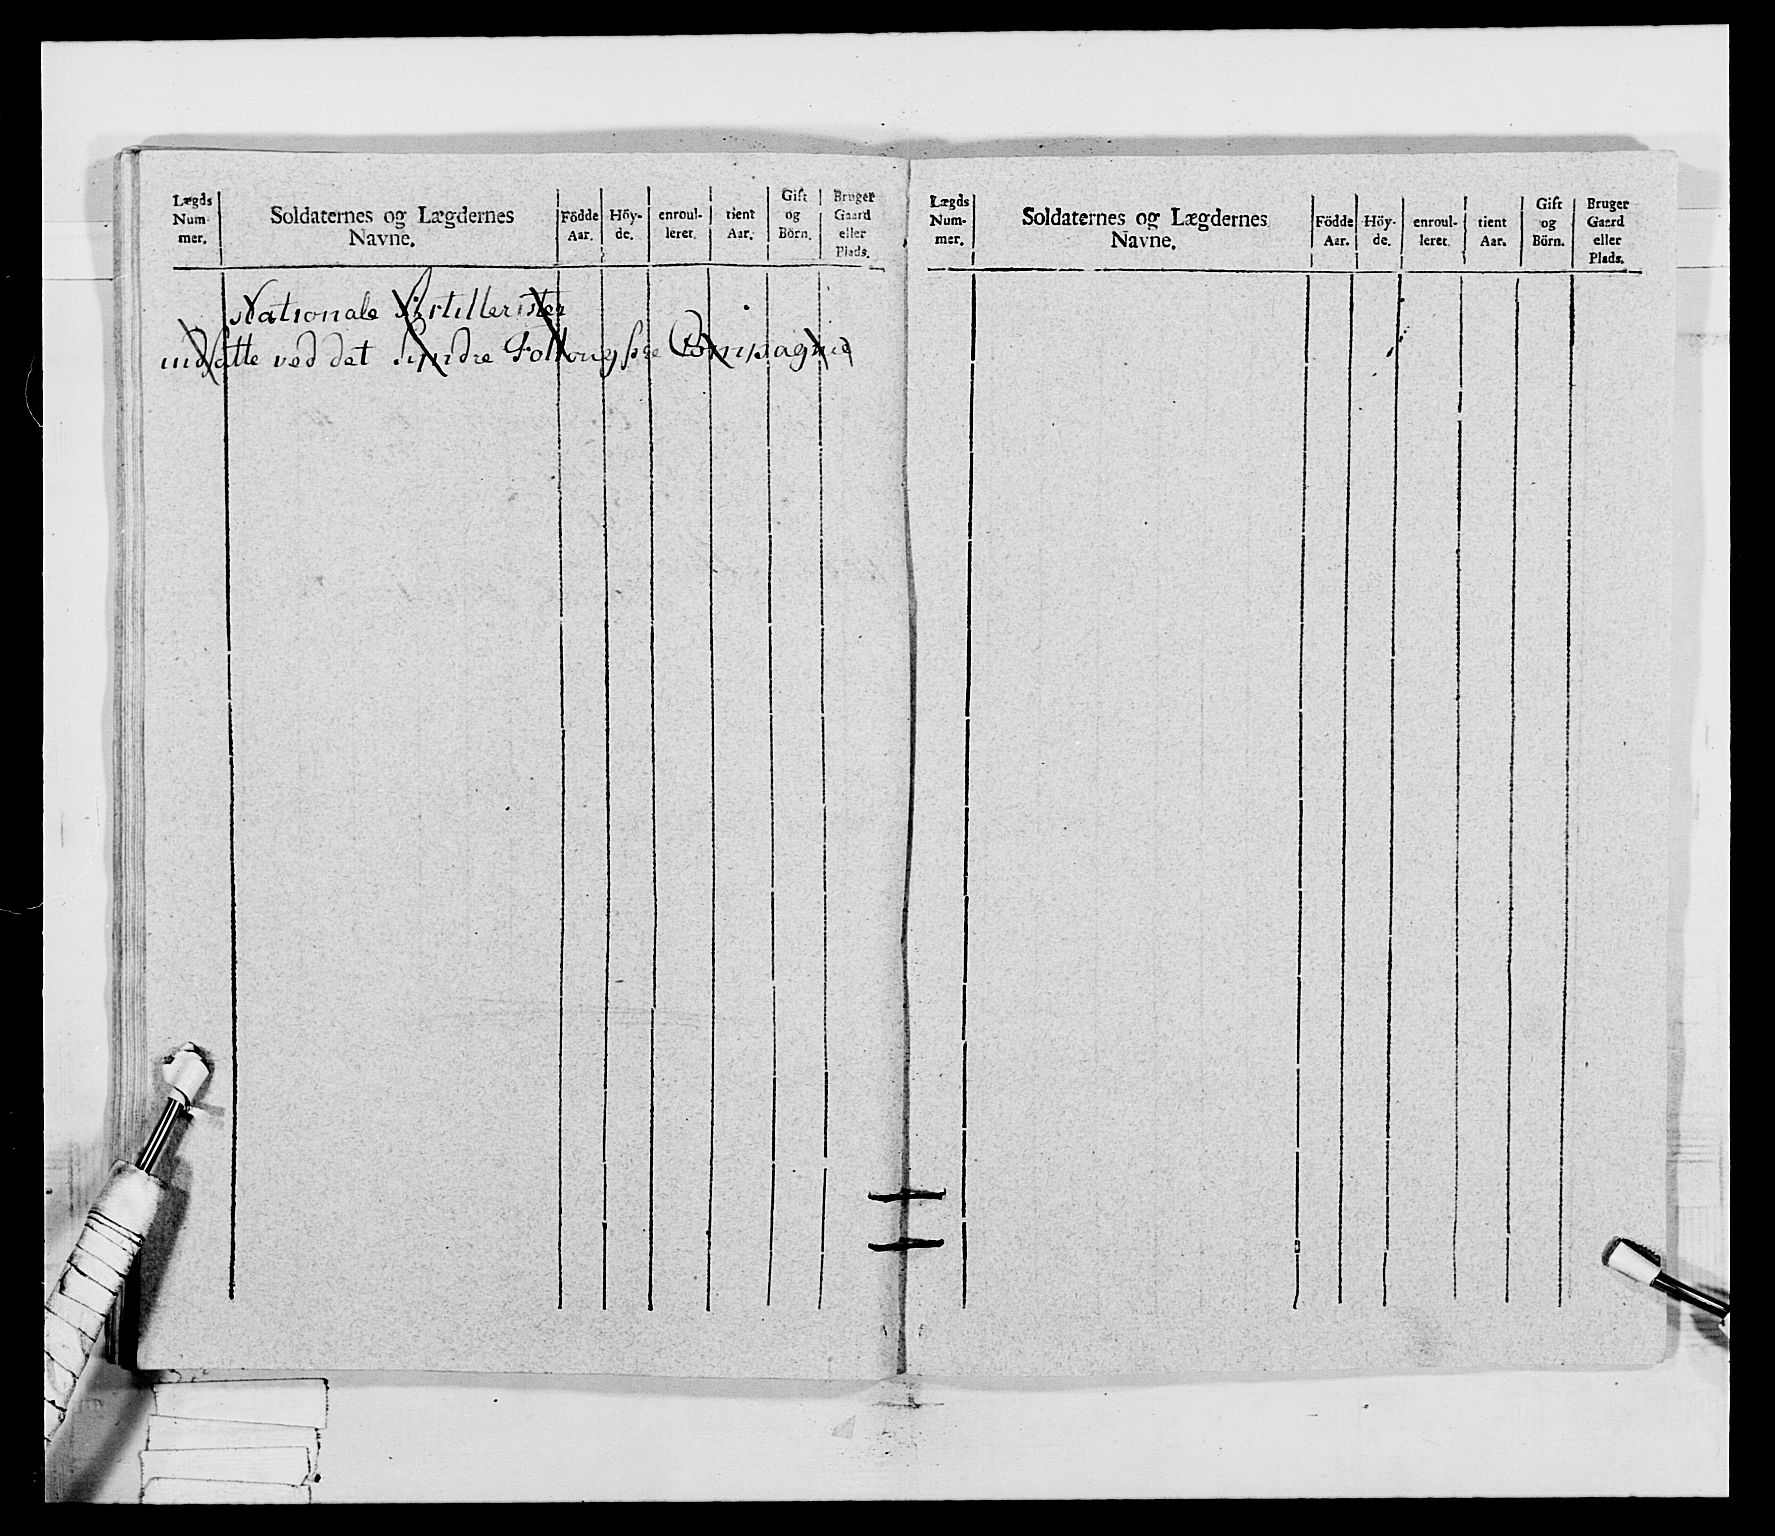 Lægds
Num-
mer.
Soldaternes og Lægdernes
Navne.
Födde
Aar.
Höy-
de.
enroul-
leret.
tient
Aar.
Gift
og
Börn.
Bruger
Gaard
eller
Plads.
Nationale Artillerister
indsatte ved det Compagnie
Lægds
Num-
mer.
Soldaternes og Lægdernes
Navne.
Födde
Aar.
Höy-
de.
enroul-
leret.
tient
Aar.
Gift
og
Börn.
Bruger
Gaard
eller
Plads.